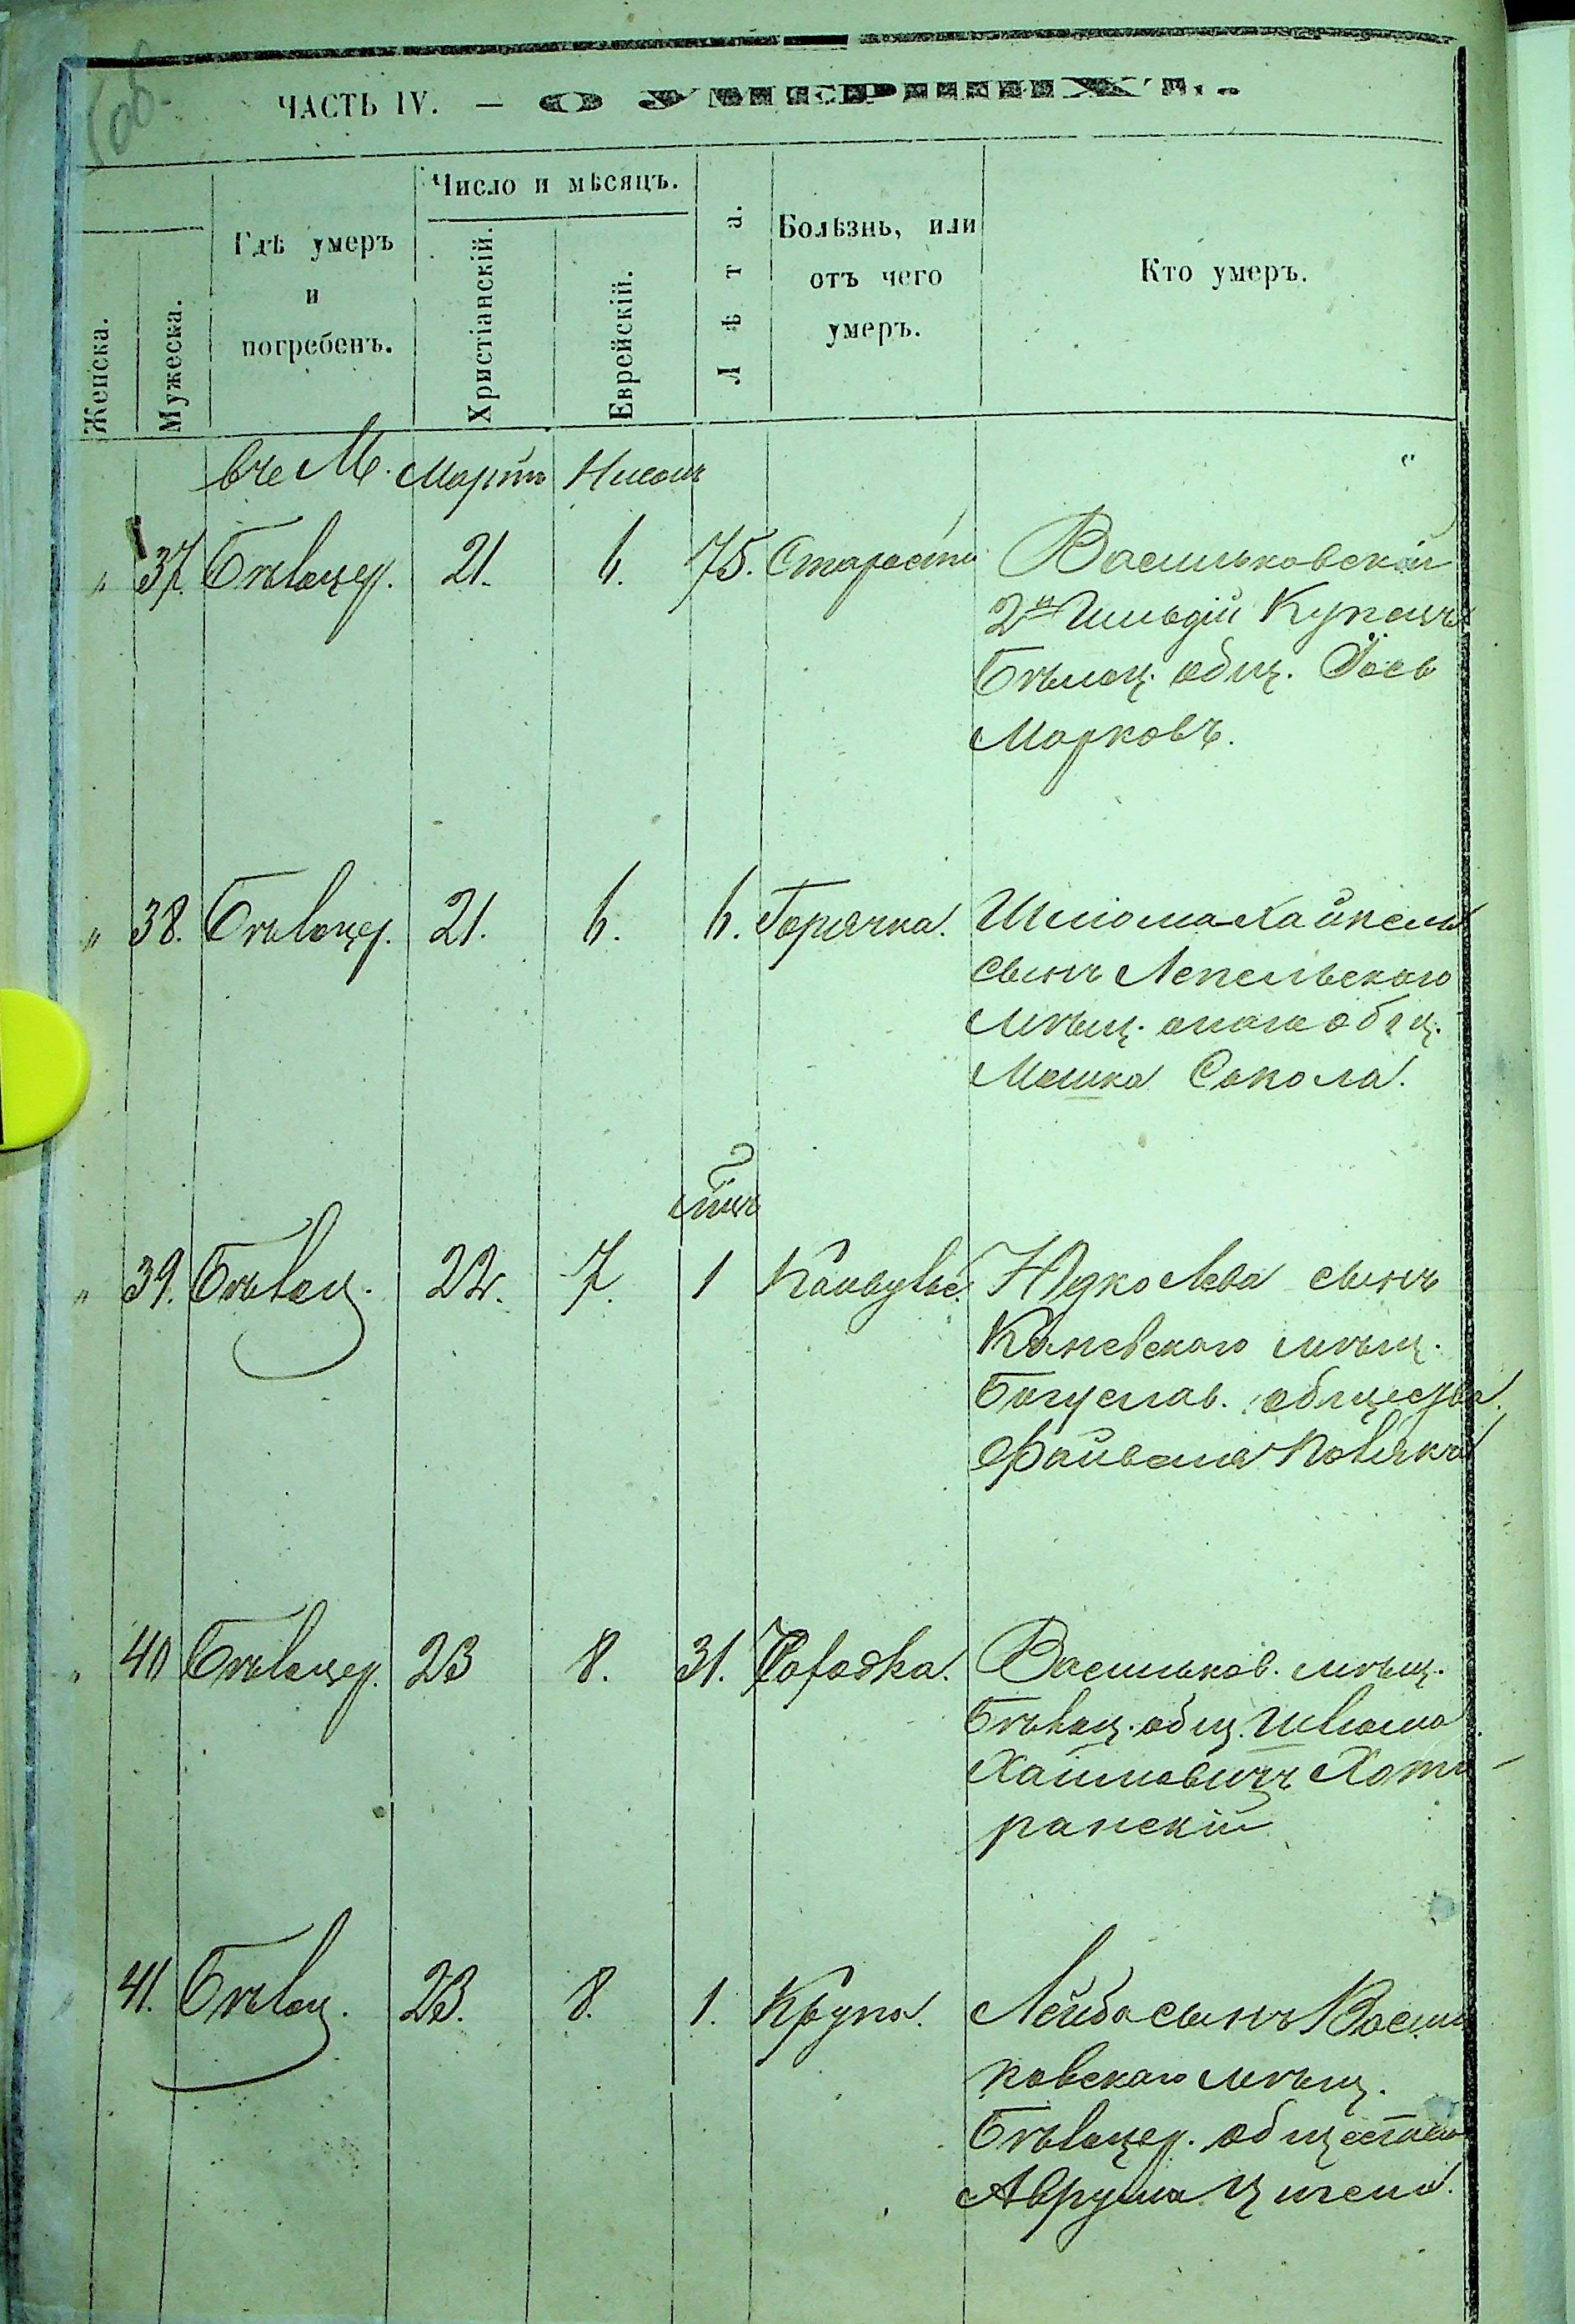 ЧАСТЬ IV. — О УМЕРШИХЪ.
Женска.
Мужеска.
Гдѣ умеръ
и
погребенъ.
Число и мѣсяцъ.
Христіанскій.
Еврейскій.
Лѣта.
Болѣзнь, или
отъ чего
умеръ.
Кто умеръ.
М. Мартъ Нисанъ
" 37. Бѣлоцер. 21. 6. 75. Старости Васильковскій
2й Гильдіи Купецъ
Бѣлоц. общ. Іось
Марковъ.
" 38. Бѣлоцер. 21. 6. 6. Горячка. Шліома Хайкель
сынъ Лепельскаго
мѣщ. общ.
Мошка Сокола.
" 39. Бѣлоц. 22. 7. 1 Юдко Лева сынъ
Каневскаго мѣщ.
Богуслав. общества
Файвеля
" 40 Бѣлоцер. 23 8. 31. Васильков. мѣщ.
Бѣлоц. общ. Шлиома
Хаимовичъ Хот
ранскій
41. Бѣлоц. 23. 8. 1. Крупа. Лейба сынъ Василь
ковскаго мѣщ.
Бѣлоцер. общества
Аврума